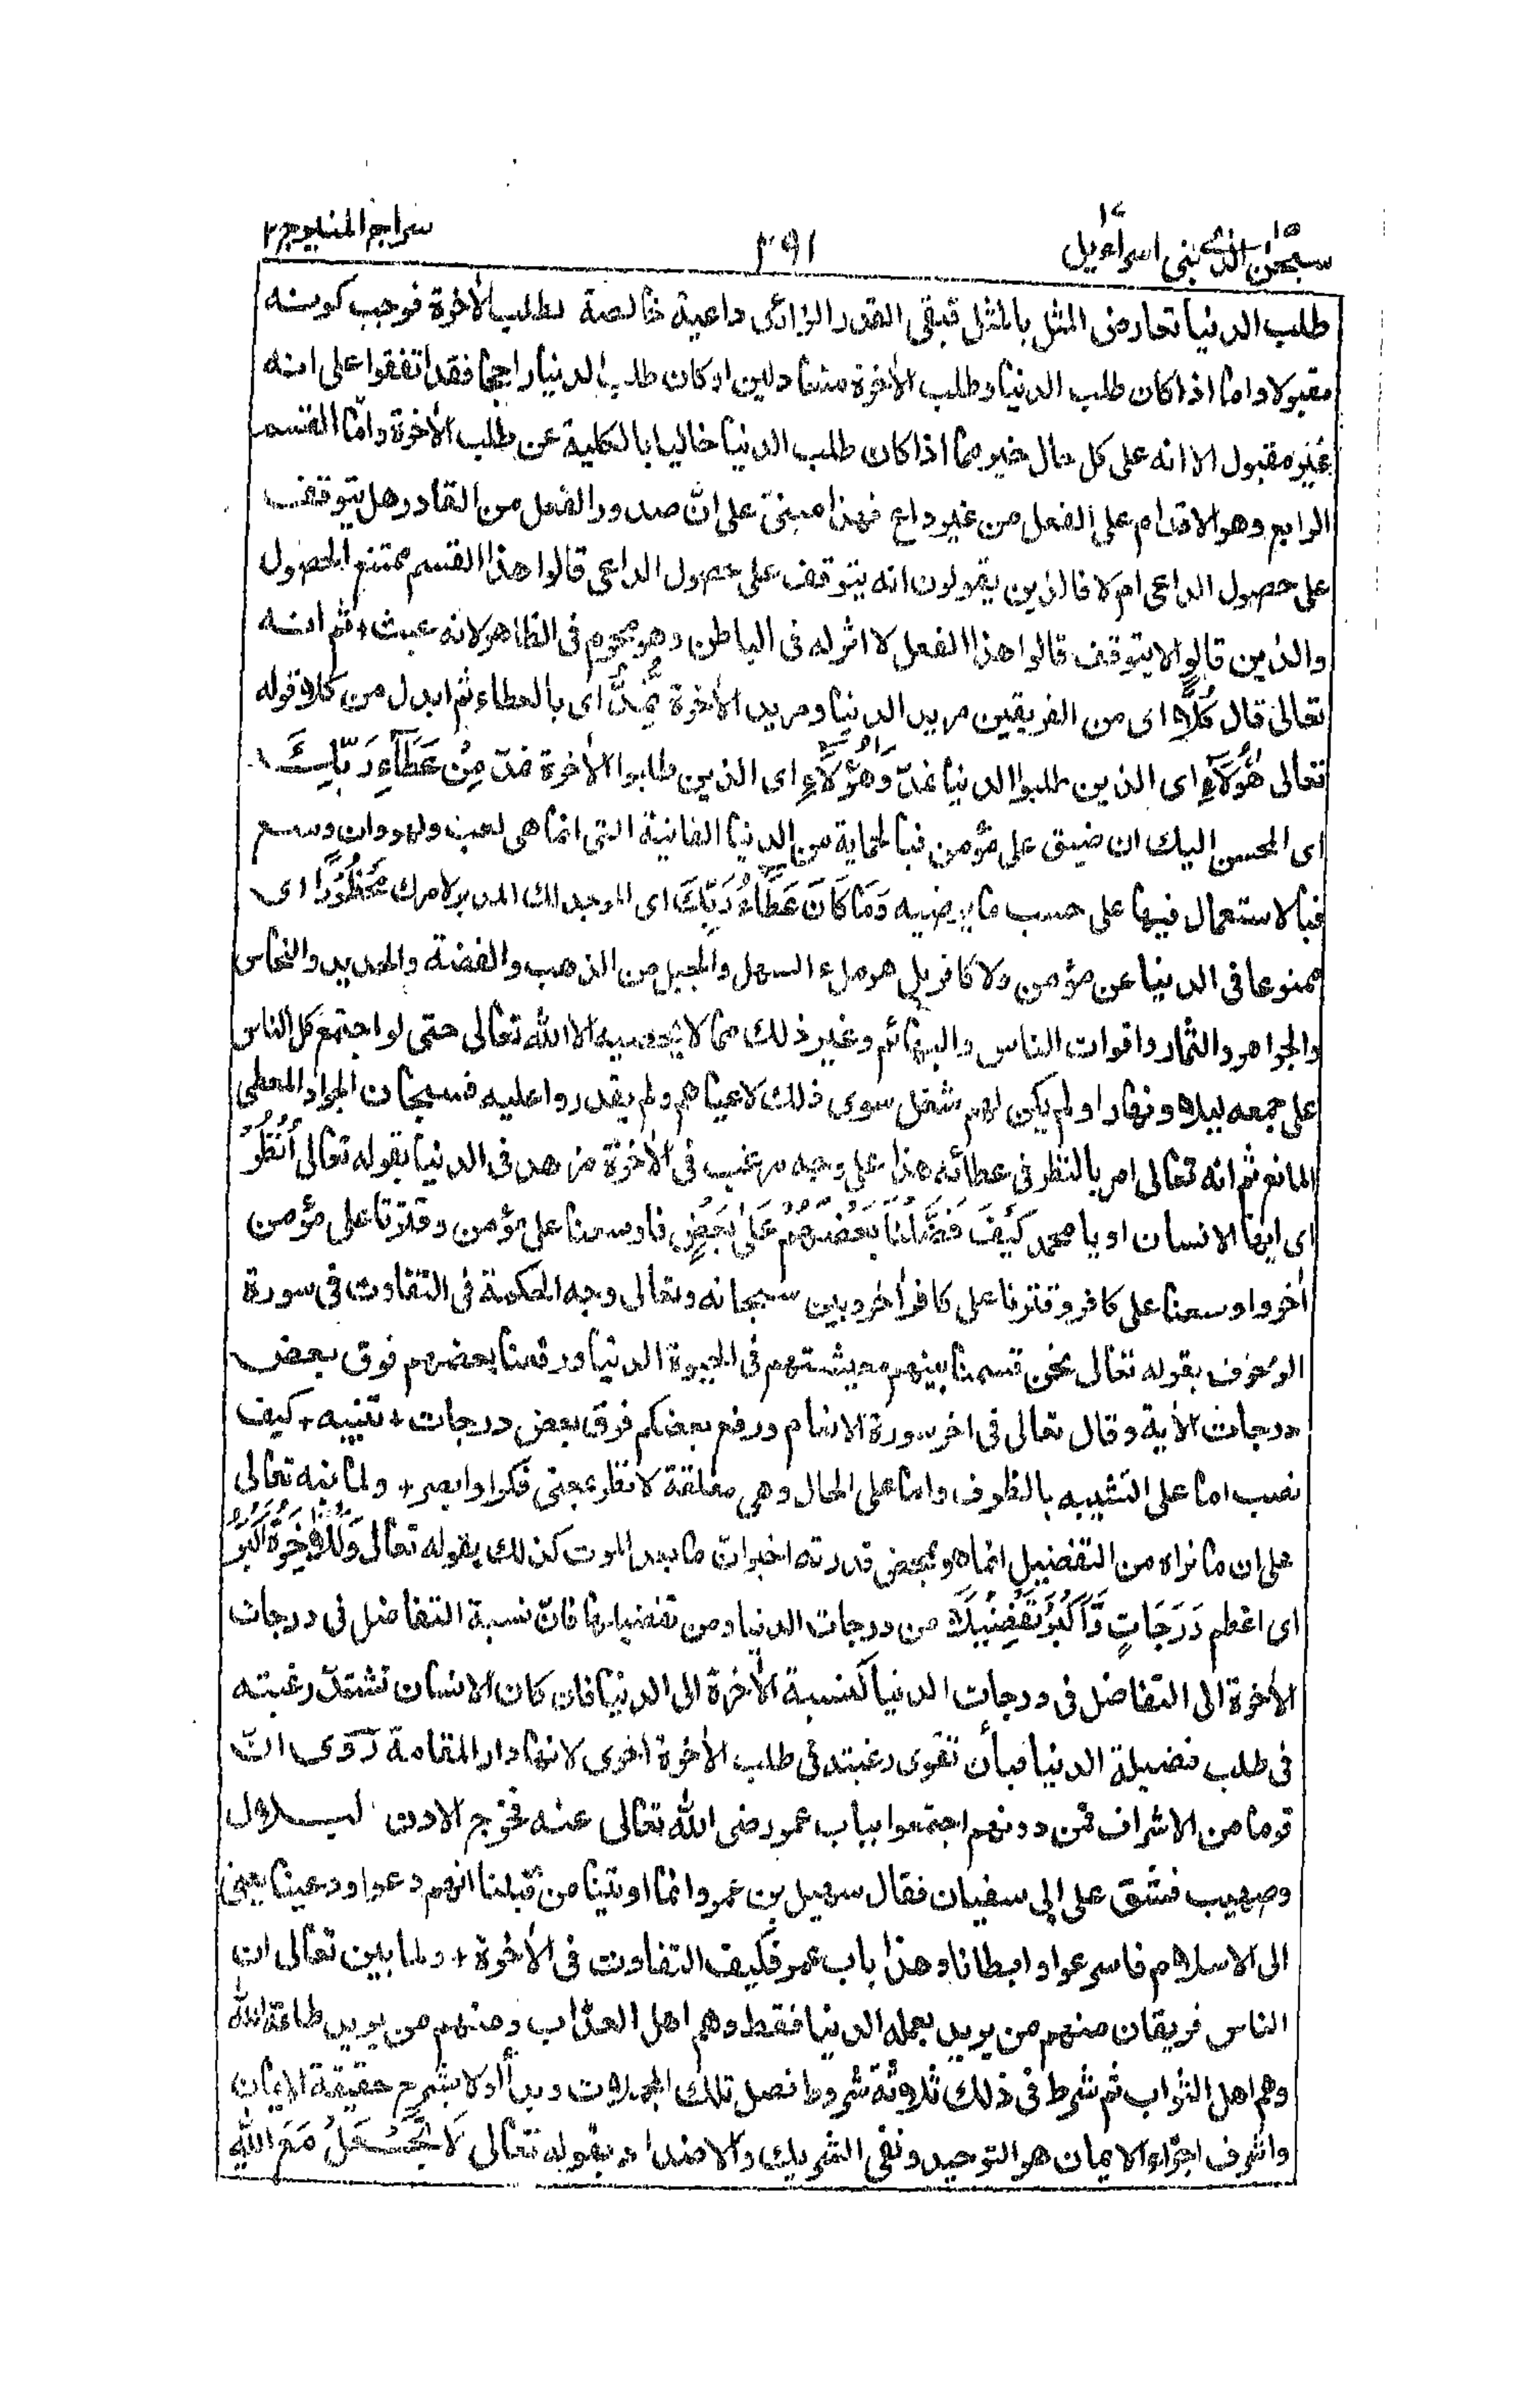 سبحٰن الذی ۱۵ بنی اسرائیل ۱۷
۲۹۱
سراج المنیر ج ۲
طلب الدنيا تعارض المثل بالمثل فيبقى القدر الزائد داعية خالصة لطلب الأخرة فوجب كونه
مقبولا واما اذا كان طلب الدنيا وطلب الأخرة متعادلين او كان طلب الدنيا راجحا فقد اتفقوا على انه
غير مقبول الا انه على كل حال خير مما اذا كان طلب الدنيا خاليا بالكلية عن طلب الأخرة واما القسم
الرابع وهو الاقدام على الفعل من غير داع فهذا مبنى على انّ صدور الفعل من القادر هل يتوقف
على حصول الداعى ام لا فالذين يقولون انه يتوقف على حصول الداعى قالوا هذا القسم ممتنع الحصول
والذين قالوا لا يتوقف قالوا هذا الفعل لا اثر له فى الباطن وهو محرم فى الظاهر لانه عبث + ثم انه
تعالى قال كُلًّا اى من الفريقين مريد الدنيا ومريد الأخرة نُّمِدُّ اى بالعطاء ثم ابدل من كلا قوله
تعالى هٰٓؤُلَآءِ اى الذين طلبوا الدنيا نمدّ وَهٰٓؤُلَآءِ اى الذين طلبوا الأخرة نمدّ مِنْ عَطَآءِ رَبِّكَ
اى المحسن اليك ان ضيق على مؤمن فبالحماية من الدنيا الفانية التى انما هى لعب ولهو وان وسع
فبالاستعمال فيها على حسب ما يرضيه وَمَا كَانَ عَطَآءُ رَبِّكَ اى الموجد لك المدبر لامرك مَحْظُوْرًا اى
ممنوعا فى الدنيا عن مؤمن ولا كافر بل هو ملء السهل والجبل من الذهب والفضة والحديد والنحاس
والجواهر والثمار واقوات الناس والبهائم وغير ذلك مما لا يحصيه الا الله تعالى حتى لو اجتمع كل الناس
على جمعه ليلا ونهارا ولم يكن لهم شغل سوى ذلك لاعياهم ولم يقدروا عليه فسبحان الجواد المعطى
المانع ثم انه تعالى امر بالنظر فى عطائه هذا على وجه مرغب فى الأخرة مزهد فى الدنيا بقوله تعالى اُنْظُرْ
اى ايها الانسان او يا محمد كَيْفَ فَضَّلْنَا بَعْضَهُمْ عَلٰى بَعْضٍ فاوسعنا على مؤمن وقترنا على مؤمن
أخر واوسعنا على كافر وقترنا على كافر أخر وبين سبحانه وتعالى وجه الحكمة فى التفاوت فى سورة
الزخرف بقوله تعالى نحن قسمنا بينهم معيشتهم فى الحيوة الدنيا ورفعنا بعضهم فوق بعض
درجات الأية وقال تعالى فى اخر سورة الانعام ورفع بعضكم فوق بعض درجات + تنبيه + كيف
نصب اما على التشبيه بالظرف واما على الحال وهى معلقة لانظر بمعنى فكر او ابصر + ولما نبه تعالى
على ان ما نراه من التفضيل انما هو بمحض قدرته اخبر ان ما بعد الموت كذلك بقوله تعالى وَلَلْاٰخِرَةُ اَكْبَرُ
اى اعظم دَرَجَاتٍ وَّاَكْبَرُ تَفْضِيْلًا من درجات الدنيا ومن تفضيلها فانّ نسبة التفاضل فى درجات
الأخرة الى التفاضل فى درجات الدنيا كنسبة الأخرة الى الدنيا فان كان الانسان تشتدّ رغبته
فى طلب فضيلة الدنيا فبأن تقوى رغبته فى طلب الأخرة احرى لانها دار المقامة رَوٰى انّ
قوما من الاشراف فمن دونهم اجتمعوا بباب عمر رضى الله تعالى عنه فخرج الاذن لبلال
وصهيب فشق على ابى سفيان فقال سهيل بن عمرو انما اوتينا من قبلنا انهم دعوا ودعينا يعنى
الى الاسلام فاسرعوا وابطانا وهذا باب عمر فكيف التفاوت فى الأخرة + ولما بين تعالى ان
الناس فريقان منهم من يريد بعمله الدنيا فقط وهم اهل العذاب ومنهم من يريد طاعة الله
وهم اهل الثواب ثم شرط فى ذلك ثلاثة شروط فصل تلك المجملات وبدأ اولا بشرح حقيقة الايمان
واشرف اجزاء الايمان هو التوحيد ونفى الشريك والاضداد بقوله تعالى لَا تَجْعَلْ مَعَ اللّٰهِ